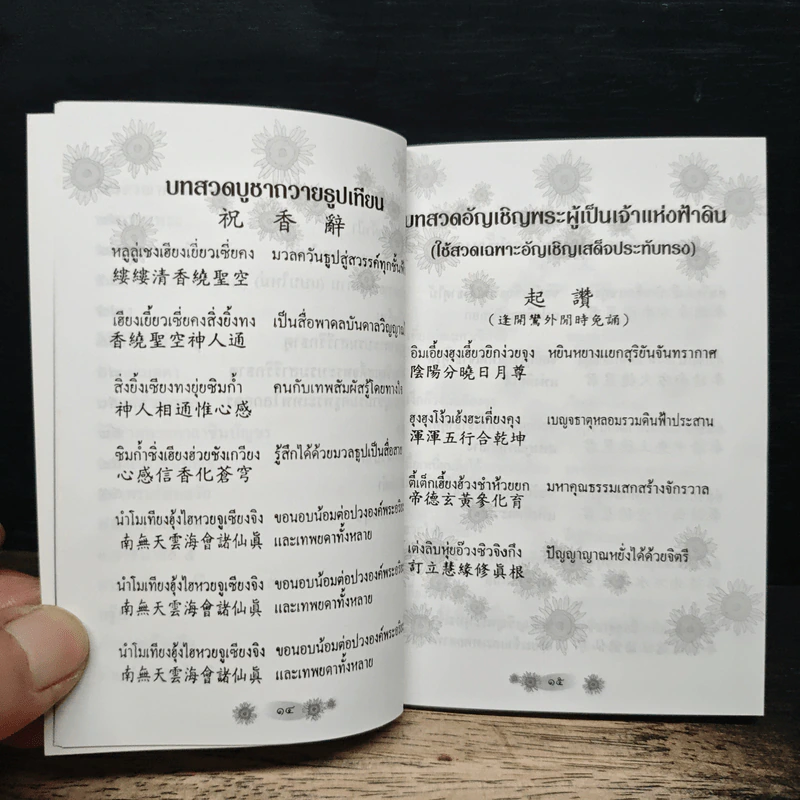 บทสวดบูชาถวายธูปเทียน
祝 香 辭
หลูลู่เชงเฮียงเยี่ยวเซี่ยคง มวลควันธูปสู่สวรรค์ทุกชั้น
縷縷清香繞聖空
เฮียงเยี้ยวเซี่ยคงสิ่งยิ้งทง เป็นสื่อพาดลบันดาลวิญญาณ
香繞聖空神人通
สิ่งยิ้งเซียงทงยุ่ยซิมก้ำ คนกับเทพสัมผัสรู้โดยทางใจ
神人相通惟心感
ซิมก้ำซิ่งเฮียงฮ่วยชังเกวียง รู้สึกได้ด้วยมวลธูปเป็นสื่อสาย
心感信香化蒼穹
นำโมเทียงฮุ้งไฮหวยจูเซียงจิง ขอนอบน้อมต่อปวงองค์พระอริยะ
南無天雲海會諸仙眞 และเทพยดาทั้งหลาย
นำโมเทียงฮุ้งไฮหวยจูเซียงจิง ขอนอบน้อมต่อปวงองค์พระอริยะ
南無天雲海會諸仙眞 และเทพยดาทั้งหลาย
นำโมเทียงฮุ้งไฮหวยจูเซียงจิง ขอนอบน้อมต่อปวงองค์พระอริยะ
南無天雲海會諸仙眞 และเทพยดาทั้งหลาย
๑๔
บทสวดอัญเชิญพระผู้เป็นเจ้าแห่งฟ้าดิน
(ใช้สวดเฉพาะอัญเชิญเสด็จประทับทรง)
起 讚
(逢開鸞外閒時免誦)
อิมเอี้ยงฮุงเฮี้ยวยิกง่วยจุง หยินหยางแยกสุริยันจันทรากาศ
陰陽分曉日月尊
ฮุงฮุงโง้วเฮ้งฮะเคี่ยงคุง เบญจธาตุหลอมรวมดินฟ้าประสาน
渾渾五行合乾坤
ตี้เต็กเฮี้ยงฮ้วงชำห้วยยก มหาคุณธรรมเสกสร้างจักรวาล
帝德玄黃參化育
เต่งลิบหุ่ยอ๊วงซิวจิงกึง ปัญญาญาณหยั่งได้ด้วยจิตรี
訂立慧緣修眞根
๑๕